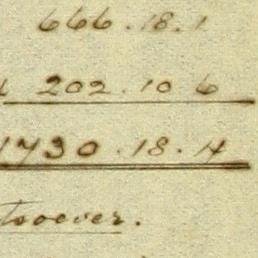 666.18.1
202.10 6
1730.18.4
tsoever.